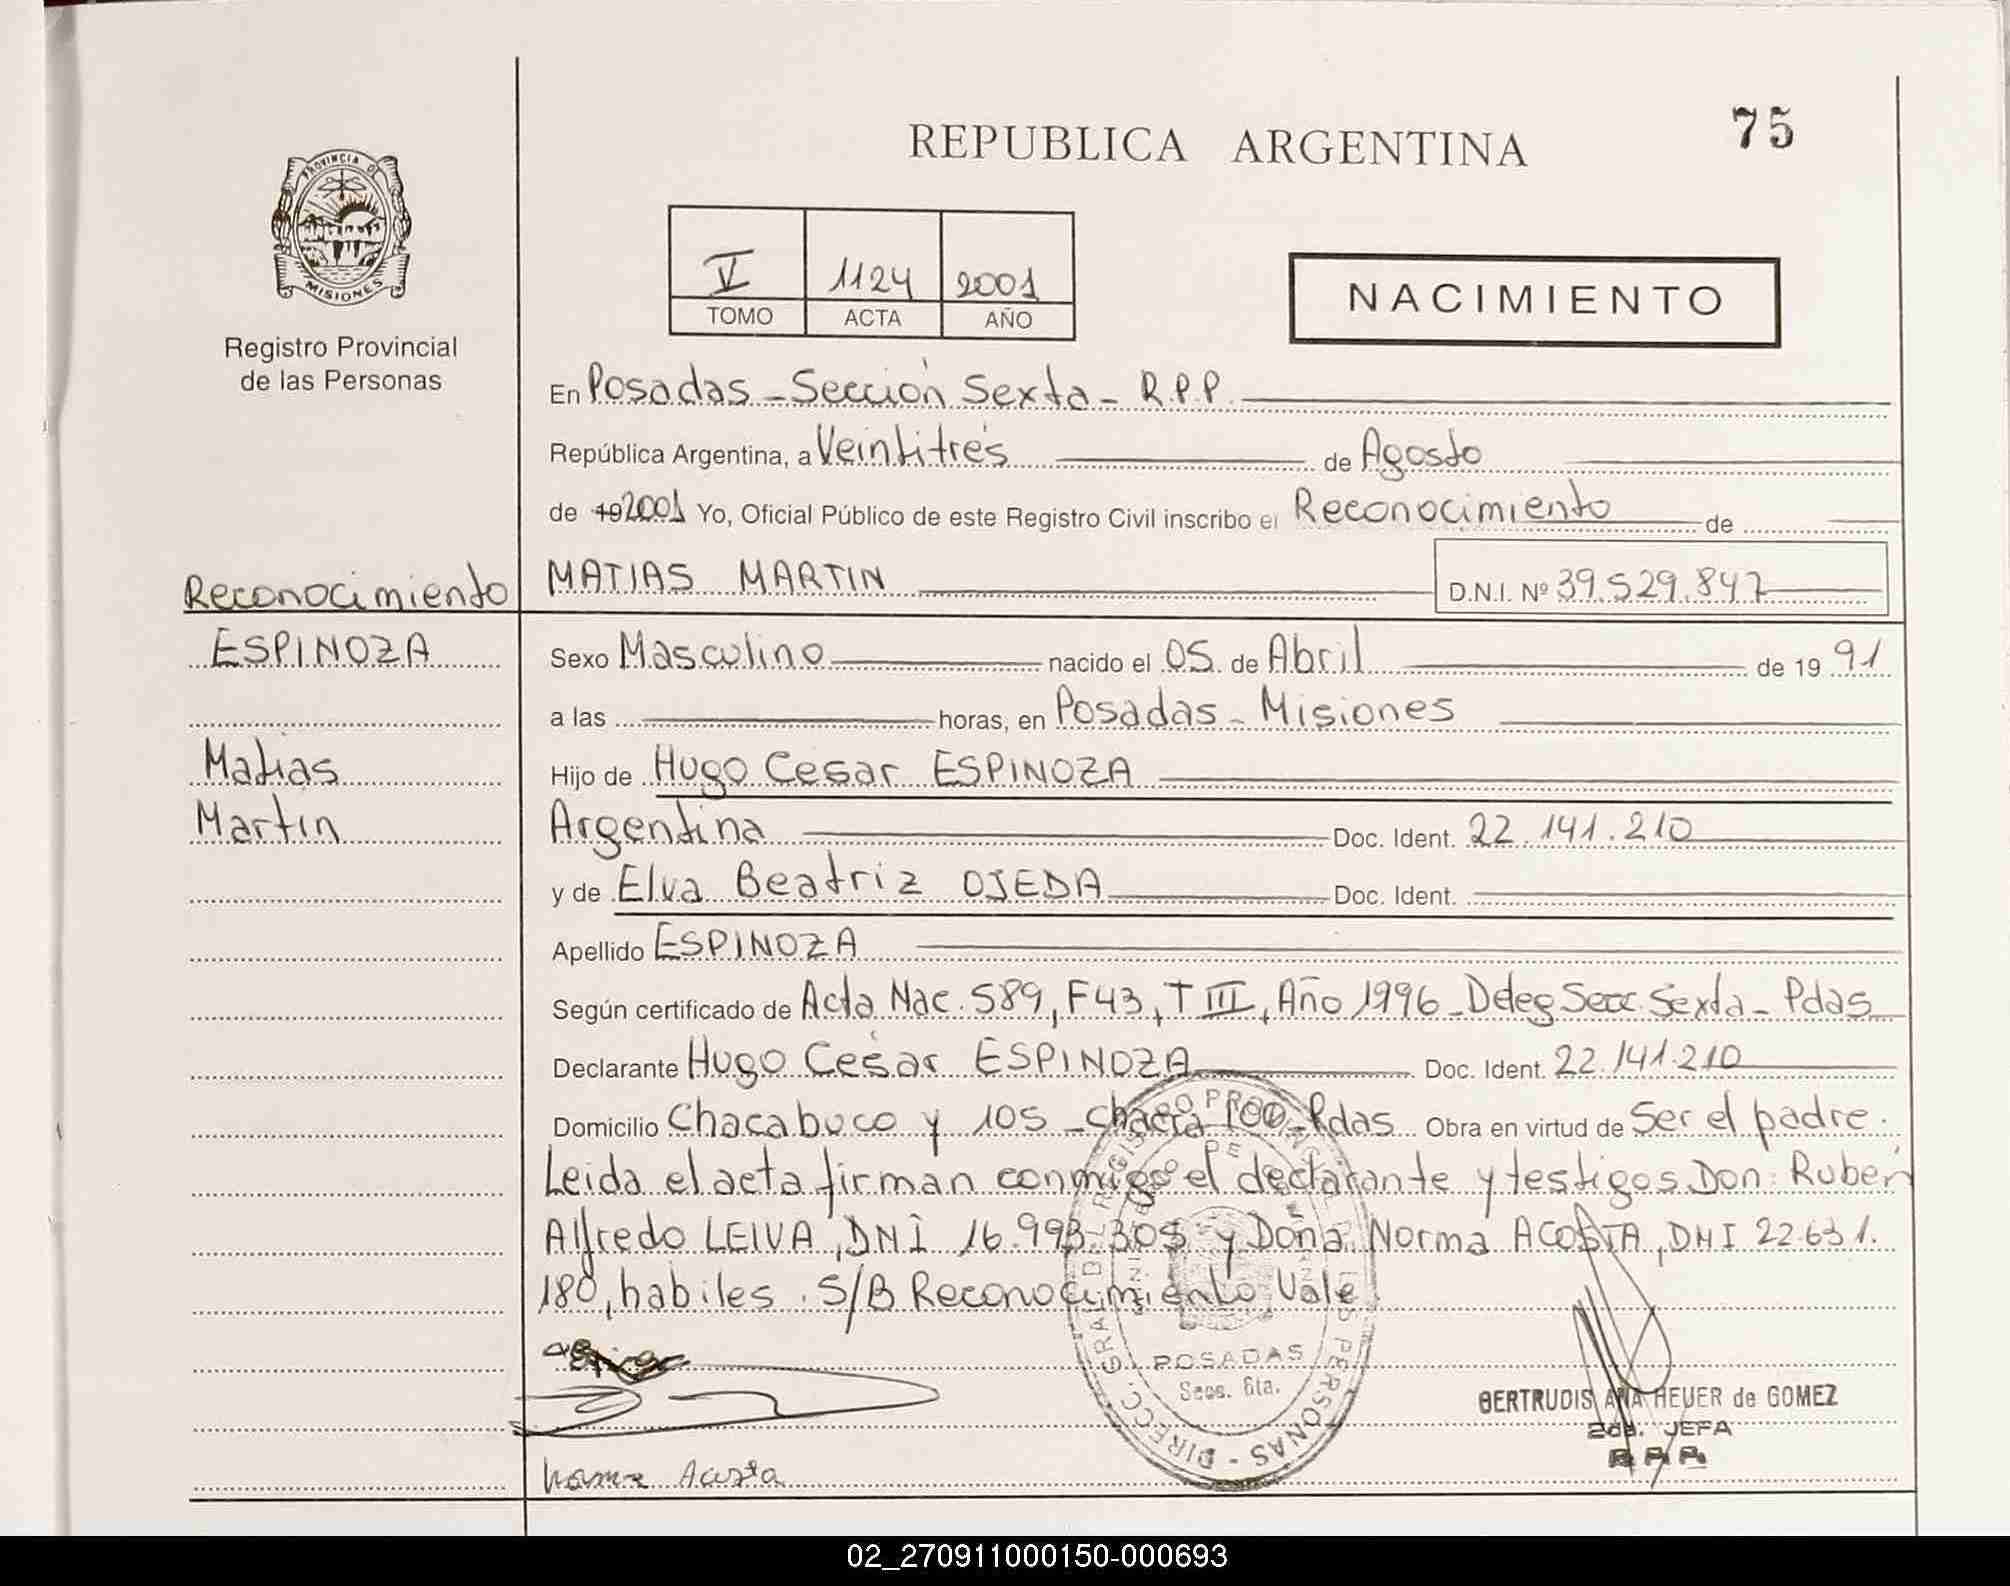 REPUBLICA ARGENTINA
75
PROVINCIA DE
MISIONES
Registro Provincial
de las Personas
V 1124 2001
TOMO ACTA AÑO
NACIMIENTO
En Posadas - Sección Sexta - R.P.P.
República Argentina, a Veintitrés de Agosto
de 19 2001 Yo, Oficial Público de este Registro Civil inscribo el Reconocimiento de
MATIAS MARTIN D.N.I. Nº 39.529.847
Reconocimiento
ESPINOZA
Matias
Martin
Sexo Masculino nacido el 05 de Abril de 19 91
a las horas, en Posadas - Misiones
Hijo de Hugo Cesar ESPINOZA
Argentina Doc. Ident. 22.141.210
y de Elva Beatriz OJEDA Doc. Ident.
Apellido ESPINOZA
Según certificado de Acta Nac. 589, F43, T III, Año 1996 - Deleg Secc. Sexta - Pdas
Declarante Hugo César ESPINOZA Doc. Ident. 22.141.210
Domicilio Chacabuco y 105 - chacra 100 - Pdas Obra en virtud de Ser el padre.
Leida el acta firman conmigo el declarante y testigos Don: Rubén
Alfredo LEIVA, DNI 16.993.305 y Doña Norma ACOSTA, DNI 22.631.
180, habiles. S/B Reconocimiento Vale
DIRECC. GRAL. DEL REGISTRO PROVINCIAL DE LAS PERSONAS
POSADAS
Secs. 6ta.
GERTRUDIS ANA HEUER de GOMEZ
2da. JEFA
R.P.P.
Norma Acosta
02_270911000150-000693